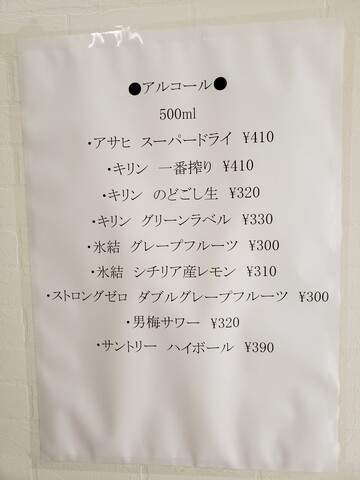 ●アルコール●
500ml
・アサヒ スーパードライ ¥410
・キリン 一番搾り ¥410
・キリン のどごし生 ¥320
・キリン グリーンラベル ¥330
・氷結 グレープフルーツ ¥300
・氷結 シチリア産レモン ¥310
・ストロングゼロ ダブルグレープフルーツ ¥300
・男梅サワー ¥320
・サントリー ハイボール ¥390